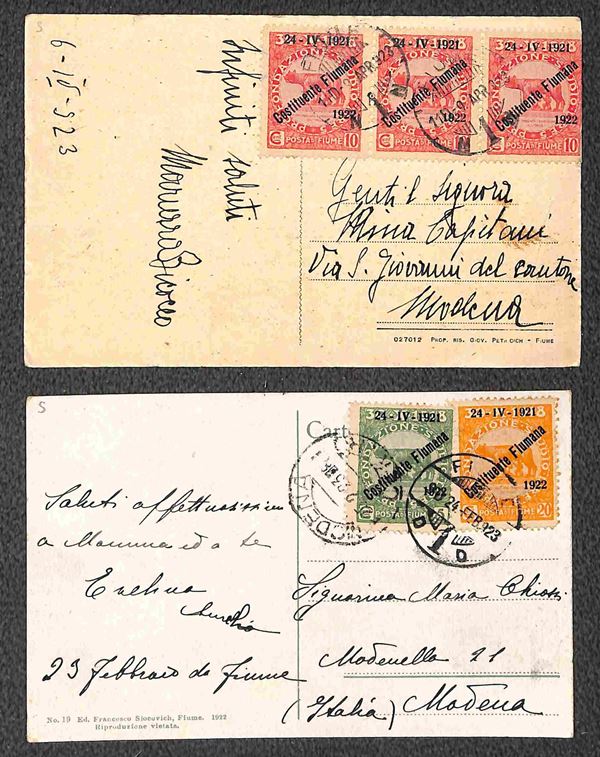 S
6-IV-923
Infiniti saluti
24-IV-1921
Costituente Fiumana
1922
POSTA DI FIUME 10
24-IV-1921
Costituente Fiumana
1922
POSTA DI FIUME
24-IV-1921
Costituente Fiumana
1922
POSTA DI FIUME 10
Gentil Signora
Via S. Giovanni del cantone
Modena
027012 PROP. RIS. GIOV. PETRICICH - FIUME
S
Cart
24-IV-1921
Costituente Fiumana
POSTA DI FIUME
FONDAZIONE STUDIO
24-IV-1921
Costituente Fiumana
1922
POSTA DI FIUME 20
MODENA
24 FEB 923
Saluti affettuosissimi
a Mamma ed a te
Evelina
Aurelio
23 Febbraio da Fiume
Signorina Maria
Modenella 21
(Italia) Modena
No. 19 Ed. Francesco Slocovich, Fiume. 1922
Riproduzione vietata.